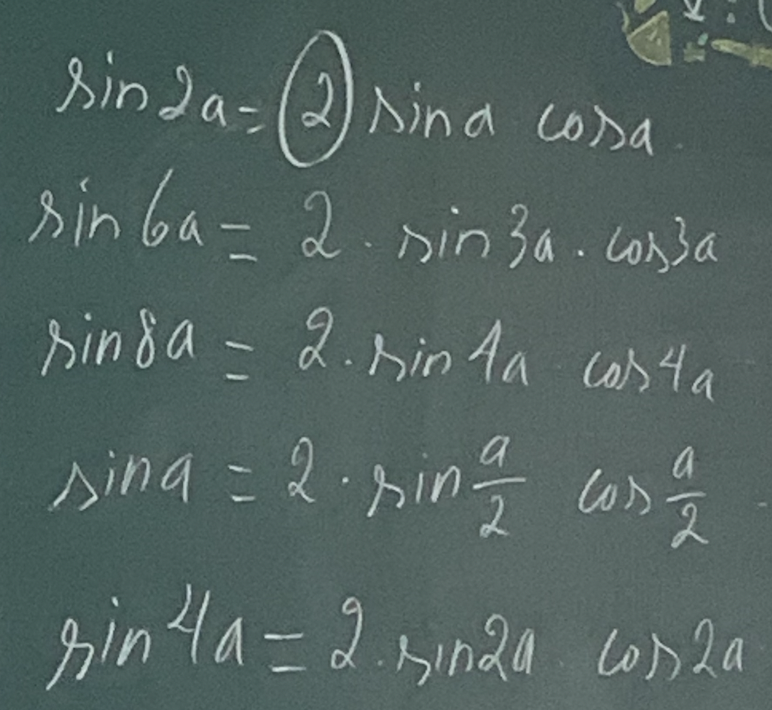 sin2a = 2 sina cosa
sin6a = 2 . sin3a . cos3a
sin8a = 2 . sin4a cos4a
sina = 2 · sin a/2 cos a/2
sin4a = 2 . sin2a cos2a